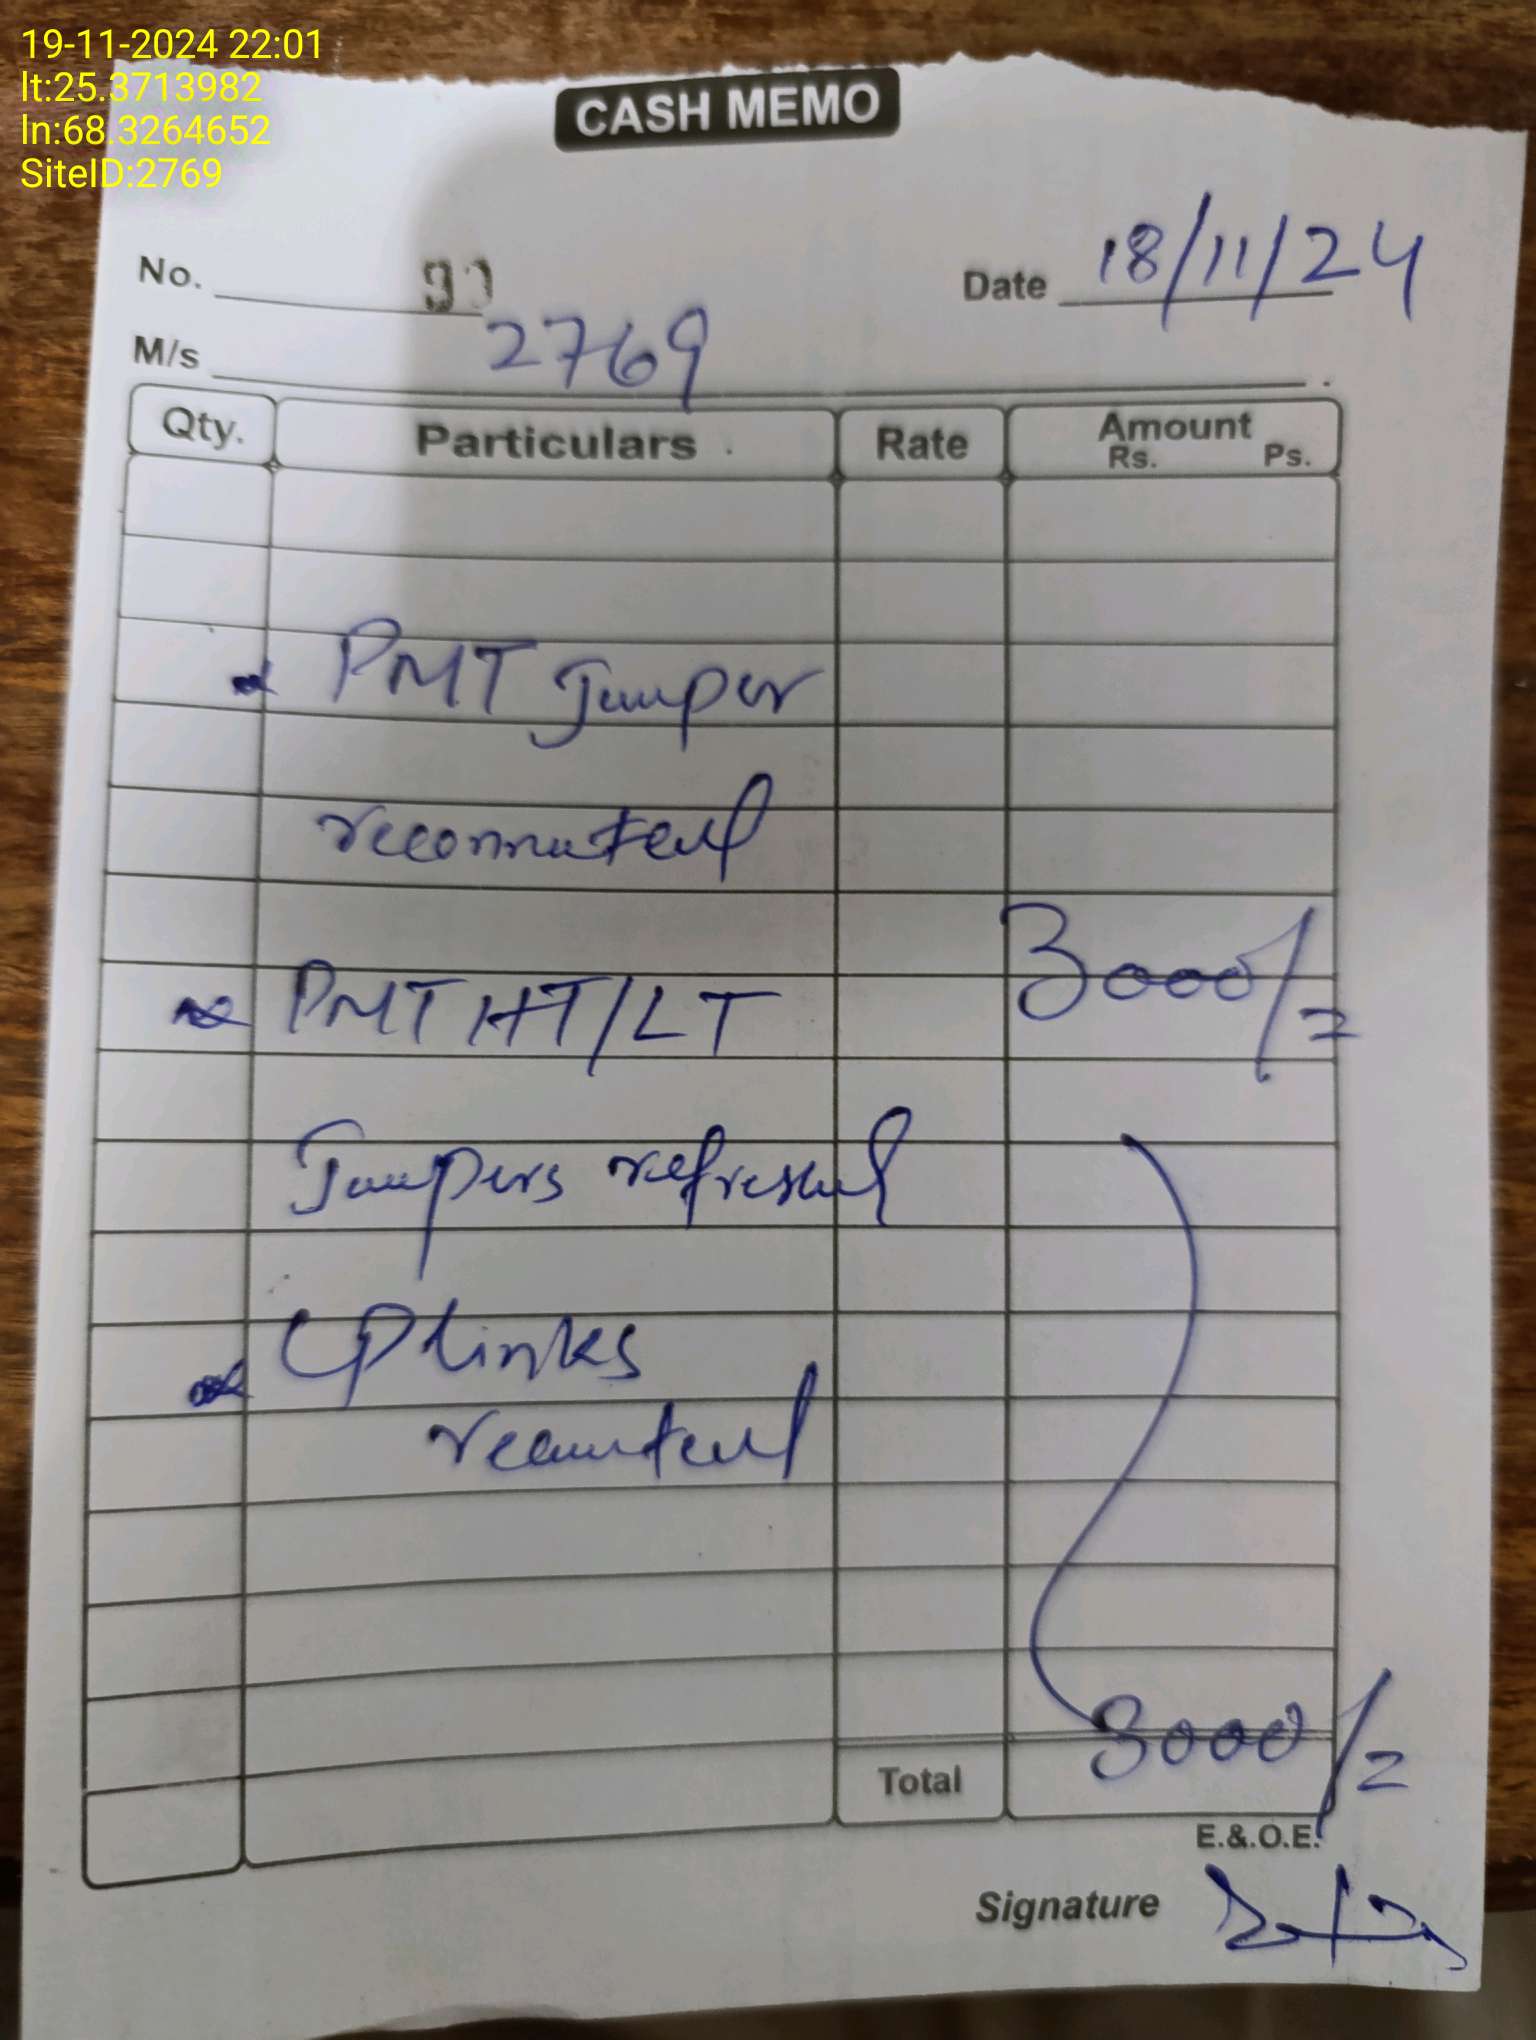 19-11-2024 22:01
lt:25.3713982
ln:68.3264652
SiteID:2769
CASH MEMO
No. Date 18/11/24
M/s 2769
Qty. Particulars Rate Amount
Rs. Ps.
PMT Jumper
reconnected
PMT HT/LT 3000/=
Jumpers refreshed
CP links
reconnected
Total 3000/=
E.&.O.E.
Signature